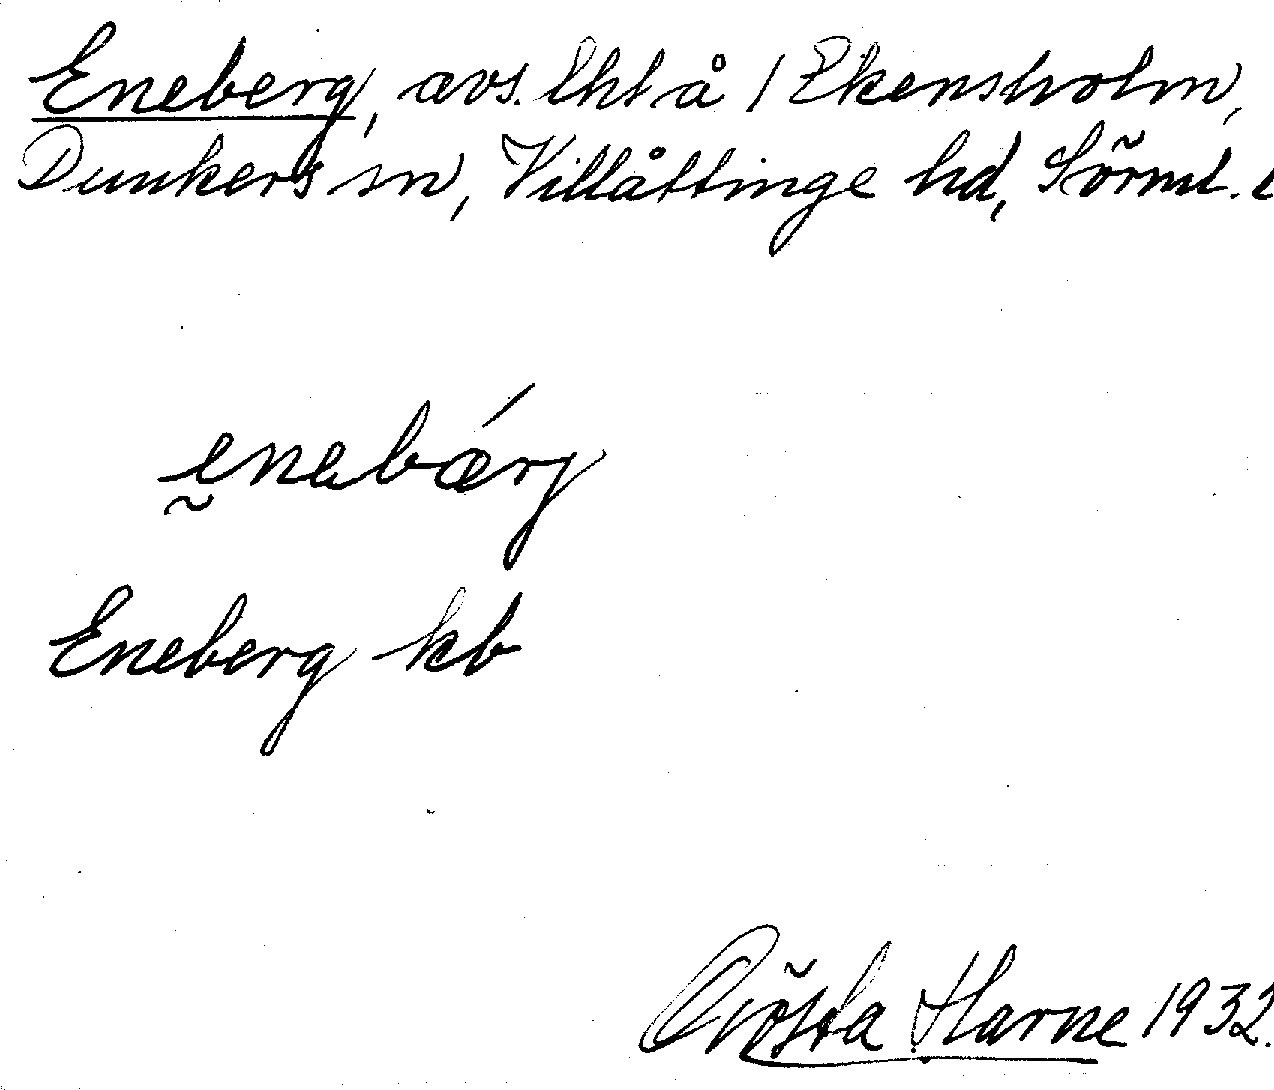 Eneberg, avs. lht å / Ekensholm,
Dunkers sn, Villåttinge hd, Sörml. l
enebærj
Eneberg kb
Gösta Harne 1932.